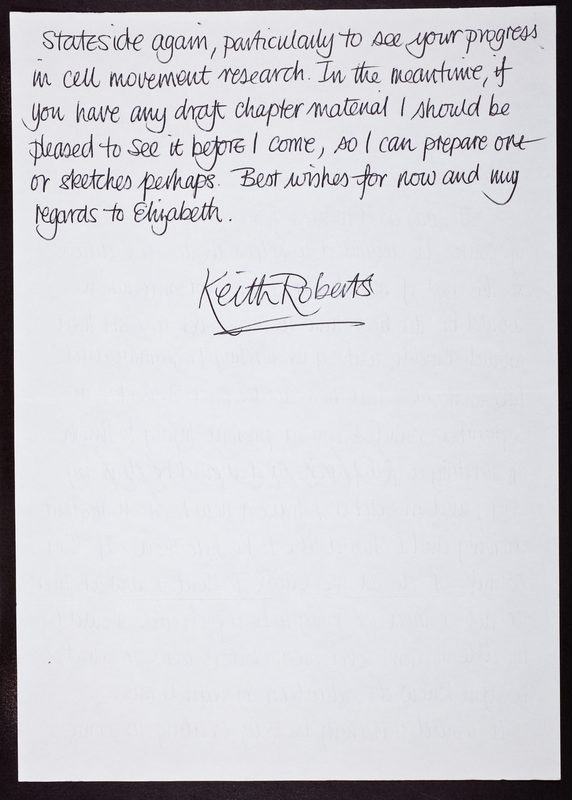 stateside again, particularly to see your progress
in cell movement research. In the meantime, if
you have any draft chapter material I should be
pleased to see it before I come, so I can prepare one
or sketches perhaps. Best wishes for now and my
regards to Elizabeth.
Keith Roberts